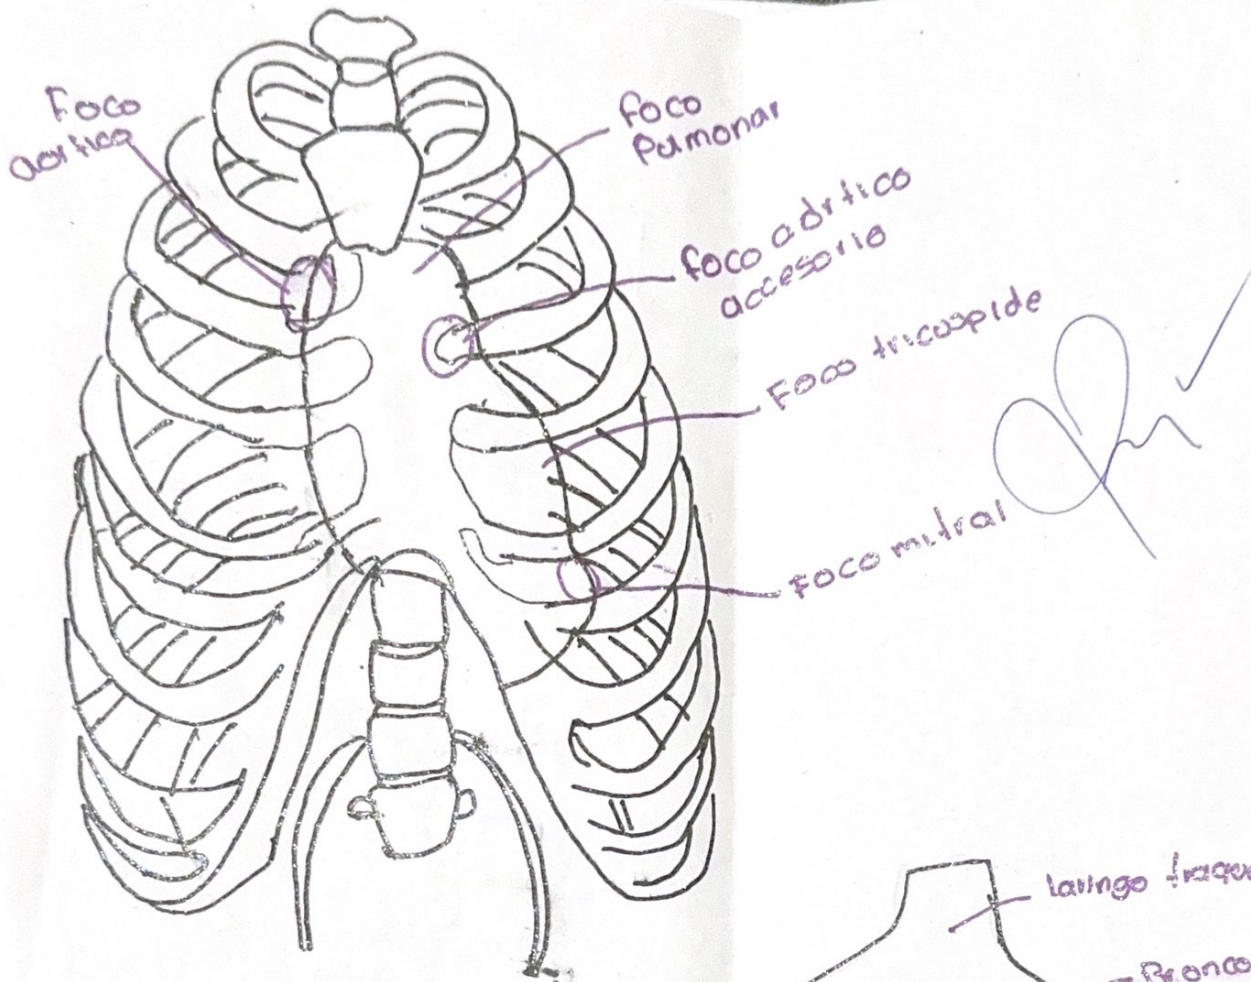 Foco
aortico
foco
Pulmonar
foco aórtico
accesorio
Foco tricuspide
Foco mitral
laringo
Bronco